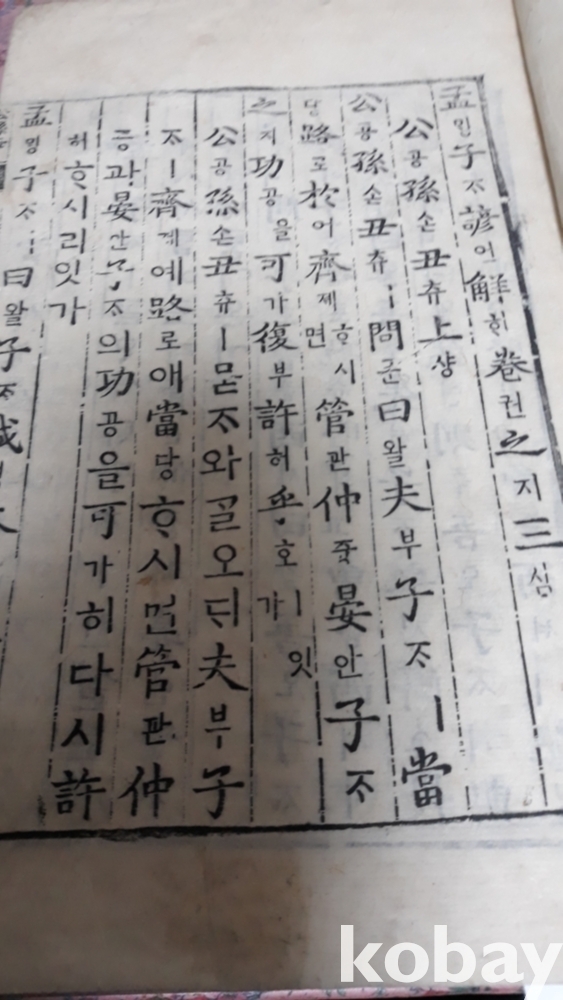 孟ᄆᆡᆼ子ᄌᆞ諺언解ᄒᆡ卷권之지三삼
公공孫손丑츄上샹
公공孫손丑츄ㅣ問문曰왈夫부子ᄌᆞㅣ當
당路로於어齊졔ᄒᆞ시면管관仲듕晏안子ᄌᆞ
之지功공을可가復부許허乎호ㅣ잇가
公공孫손丑츄ㅣ묻ᄌᆞ와ᄀᆞᆯ오ᄃᆡ夫부子
ᄌᆞㅣ齊졔예路로애當당ᄒᆞ시면管관仲
듕과晏안子ᄌᆞ의功공을可가히다시許
허ᄒᆞ시리잇가
孟ᄆᆡᆼ子ᄌᆞㅣ曰왈子ᄌᆞ誠
kobay